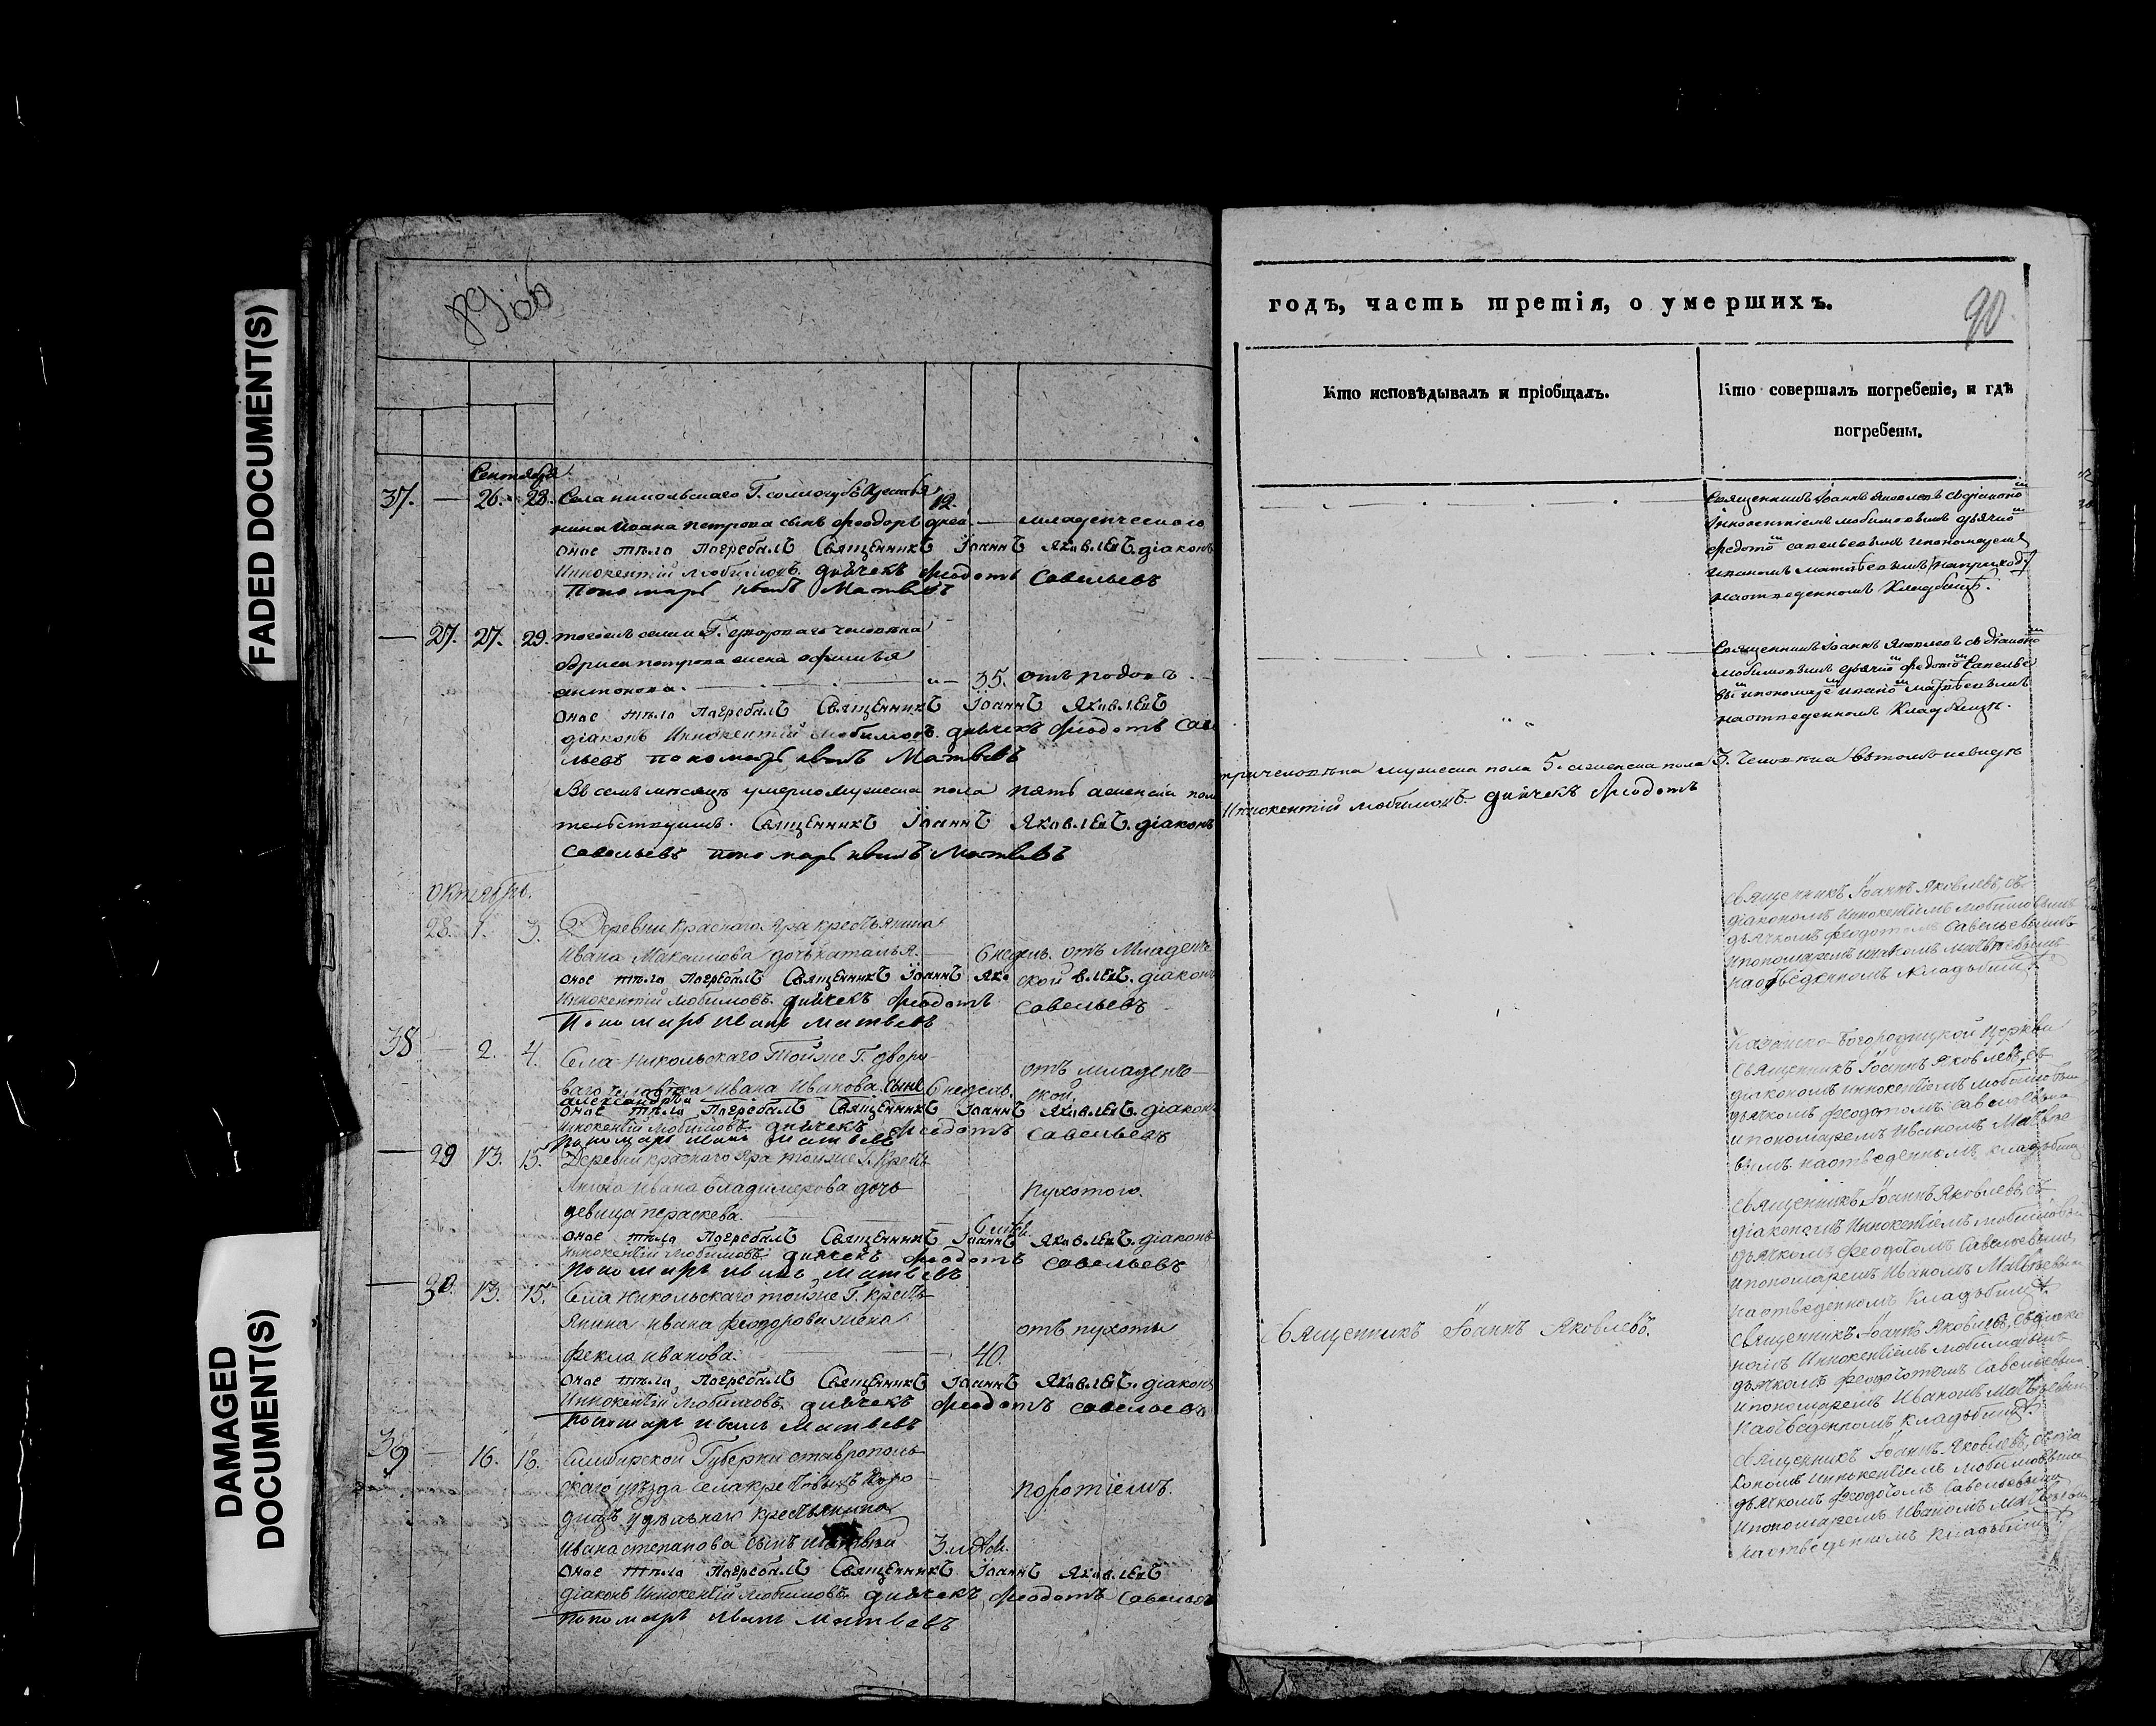 FADED DOCUMENT(S)
DAMAGED
DOCUMENT(S)
89 об
Сентября
37. — 26. 28. Села никольскаго Г. сологубъ Крестья 12.
нина Ивана петрова сынъ Феодоръ дней — младенческаго
оное тѣло погребалъ Священникъ Іоаннъ Яковлевъ. діаконъ
Иннокентій Любимовъ. дьячекъ Феодотъ Савельевъ
Пономарь Иванъ Матвѣевъ
— 27. 27. 29. тогожъ села Г. двороваго человѣка
петрова жена
антонова. — 35. отъ родовъ.
оное тѣло погребалъ Священникъ Іоаннъ Яковлевъ
діаконъ Иннокентій Любимовъ. дьячекъ Феодотъ Саве
льевъ пономарь Иванъ Матвѣевъ
Въ семъ мѣсяцѣ умерло мужеска пола пять а женска пола
тельствуемъ. Священникъ Іоаннъ Яковлевъ. діаконъ
Савельевъ пономарь Иванъ Матвѣевъ
октябрь.
28. 1. 3. Деревни Краснаго Яра крестьянина
Ивана Максимова дочь наталья. — 6 недѣль. отъ Младенче
оное тѣло погребалъ Священникъ Іоаннъ Яко ской влевъ. діаконъ
Иннокентій Любимовъ. дьячекъ Феодотъ Савельевъ
Пономарь Иванъ Матвѣевъ
38. — 2. 4. Села Никольскаго Тойже Г. дворо
отъ младенче
ваго человѣка Ивана Иванова сынъ 6 недѣль. ской.
александръ
оное тѣло погребалъ Священникъ Іоаннъ Яковлевъ. діаконъ
Иннокентій Любимовъ. дьячекъ Феодотъ Савельевъ
Пономарь Иванъ Матвѣевъ
— 29 13. 15. Деревни краснаго Яра тойже Г. Кресть
янина Ивана Владимерова дочь
девица параскева. — 6 лѣтъ.
оное тѣло погребалъ Священникъ Іоаннъ Яковлевъ. діаконъ
Иннокентій Любимовъ. дьячекъ Феодотъ Савельевъ
Пономарь Иванъ Матвѣевъ
— 30. 13. 15. Села Никольскаго тойже Г. Кресть
янина Ивана Феодорова жена отъ пухоты
Фекла Иванова. — 40.
оное тѣло погребалъ Священникъ Іоаннъ Яковлевъ. діаконъ
Иннокентій Любимовъ. дьячекъ Феодотъ Савельевъ
Пономарь Иванъ Матвѣевъ
39 — 16. 18. Симбирской Губерни ставрополь
скаго уѣзда села
удѣльнаго крестьянина
Ивана степанова сынъ 3. лѣтъ.
оное тѣло погребалъ Священникъ Іоаннъ Яковлевъ
діаконъ Иннокентій Любимовъ. дьячекъ Феодотъ Савельевъ
Пономарь Иванъ Матвѣевъ
годъ, часть третія, о умершихъ.
90.
Кто исповѣдывалъ и пріобщалъ.
Кто совершалъ погребеніе, и гдѣ
погребены.
Священникъ Іоаннъ Яковлевъ съ діаконо
Інокентіемъ любимовымъ дьячко
федото савельевымъ и пономаремъ
иваномъ матвѣевымъ
на отведенномъ Кладбищѣ.
Священникъ Іоаннъ Яковлевъ съ діаконо
любимовымъ дьячко федото Савелье
вы и пономаре ивано матвѣевымъ
на отведенномъ Кладбищѣ.
три человѣка мужеска пола 5. а женска пола 3. человѣка
Иннокентій Любимовъ. дьячекъ Феодотъ
Священникъ Іоаннъ Яковлевъ, съ
діакономъ Иннокентіемъ Любимовымъ
дьячкомъ Феодотомъ Савельевымъ
и пономаремъ иваномъ матвѣевымъ
на отведенномъ кладьбищѣ.
Казанско-Богородицкой Церкви
Священникъ Іоаннъ Яковлевъ, съ
діакономъ Иннокентіемъ Любимовы
дьячкомъ Феодотомъ Савельевы
и пономаремъ Иваномъ Матвѣе
вымъ. на отведенномъ кладьбищ
Священникъ Іоаннъ Яковлевъ, съ
діакономъ Иннокентіемъ Любимовы
дьячкомъ Феодотомъ Савельевым
и пономаремъ Иваномъ Матвѣевым
на отведенномъ Кладьбищѣ.
Священникъ Іоаннъ Яковлевъ.
Священникъ Іоаннъ Яковлевъ, съ діако
номъ Иннокентіемъ Любимовымъ
дьячкомъ Феодотомъ Савельевы
и пономаремъ Иваномъ Матвѣевы
На отведенномъ кладьбищѣ.
Священникъ Іоаннъ Яковлевъ, съ діа
кономъ Иннокентіемъ Любимовымъ
дьячкомъ Феодотомъ Савельевым
и пономаремъ Иваномъ Матвѣевы
на отведенномъ Кладьбищѣ